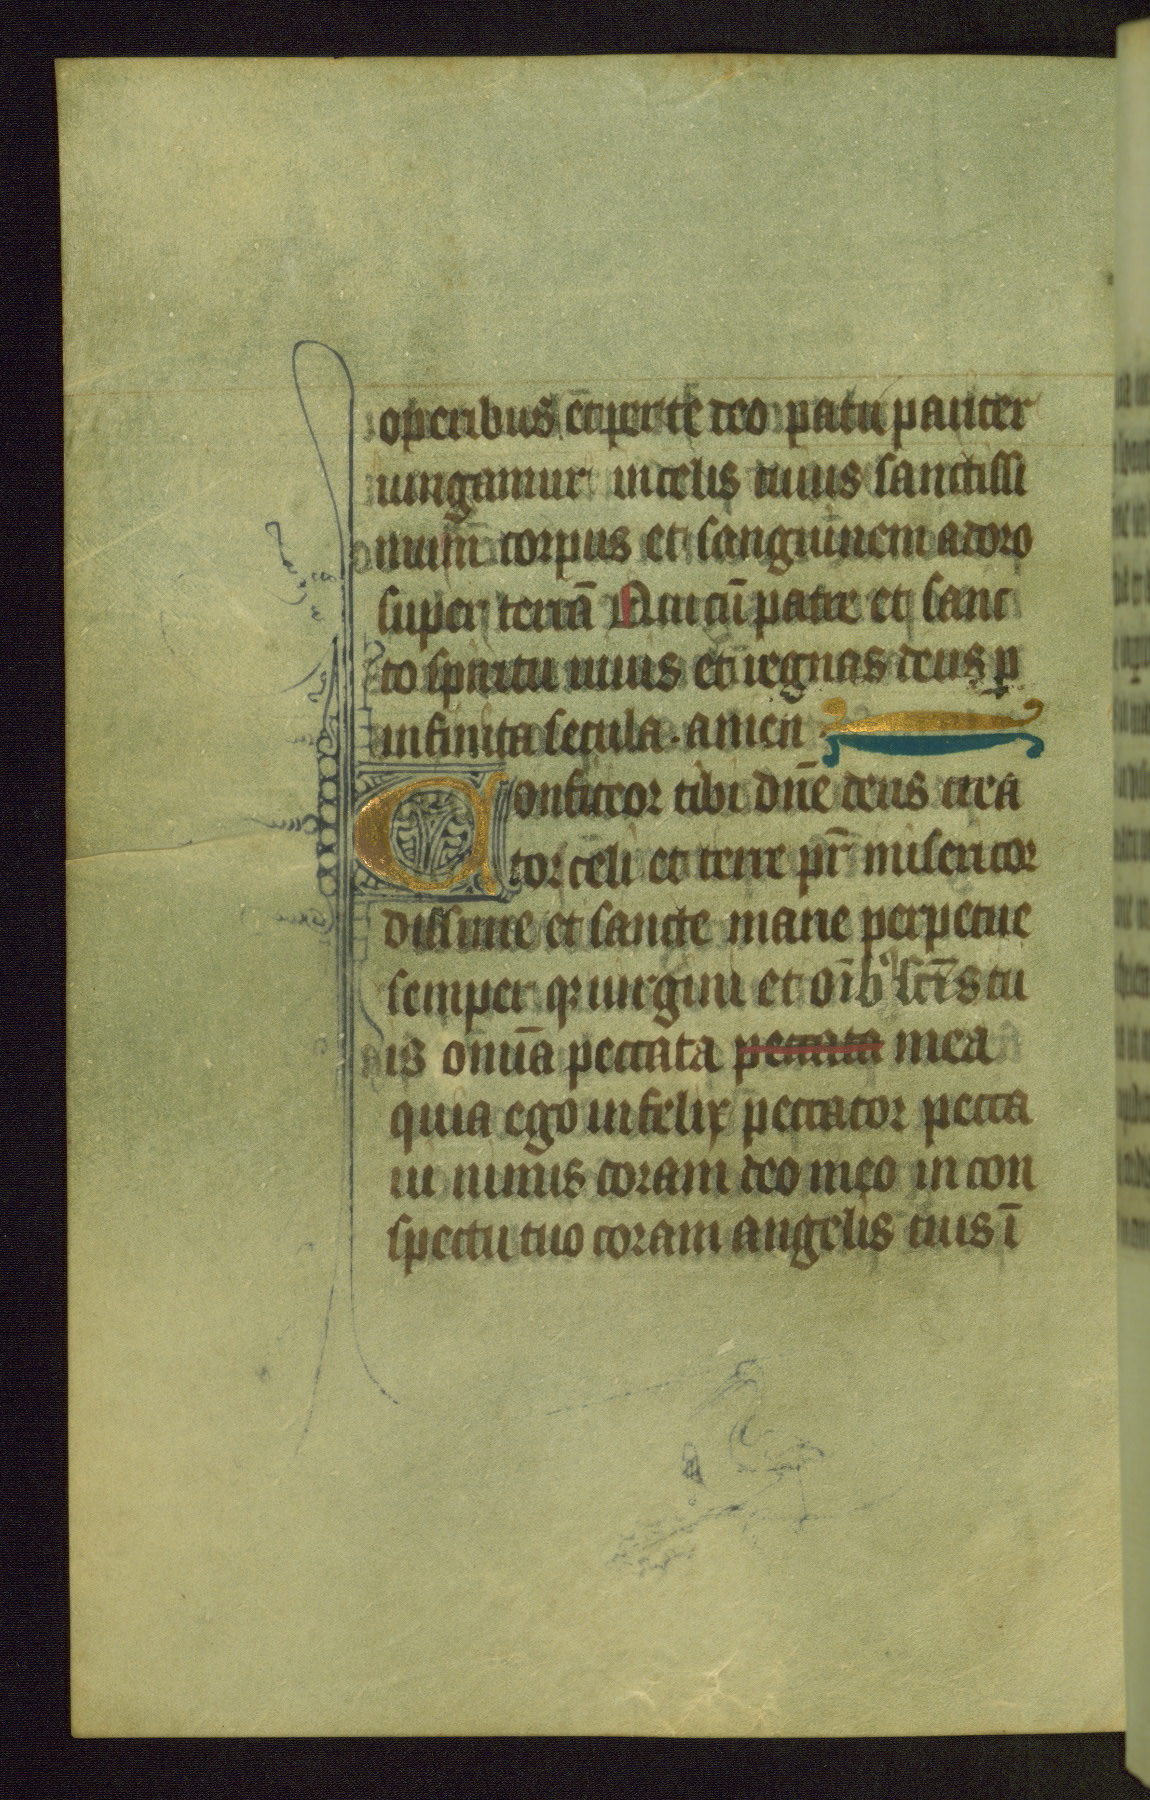 operibus et per te deo patri pariter
iungamur in celis cuius sanctissi
mum̄ corpus et sanguinem adoro
super terrā Qui cū patre et sanc
to spiritu uiuis et regnas deus p̱
infinita secula. amen
Confiteor tibi dn̄e deus crea
tor celi et terre pr̄ misericor
dissime et sancte marie perpetue
semper qꝫ uirgini et oīb' sc̄īs tu
is om̄ia peccata peccata mea
quia ego infelix peccator pecca
ui nimis coram deo meo in con
spectu tuo coram angelis tuis ī